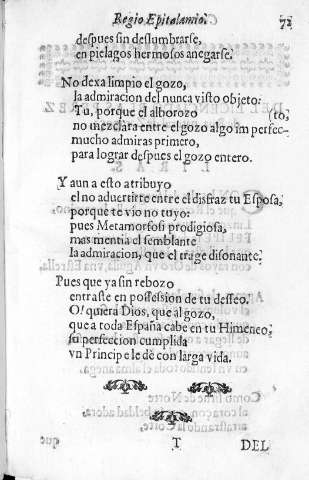 Regio Epitalamio. 72
despues sin deslumbrarse,
en pielagos hermosos anegarse.
No dexa limpio el gozo,
la admiracion del nunca visto objeto:
Tu, porque el alborozo (to,
no mezclara entre el gozo algo im perfec-
mucho admiras primero,
para lograr despues el gozo entero.
Y aun a esto atribuyo
el no aduertirte entre el disfraz tu Esposa,
porque te vio no tuyo:
pues Metamorfosi prodigiosa,
mas mentia el semblante
la admiracion, que el trage disonante.
Pues que ya sin rebozo
entraste en possession de tu desseo.
O! quiera Dios, que al gozo,
que a toda España cabe en tu Himeneo,
su perfeccion cumplida
vn Principe le dè con larga vida.
T DEL